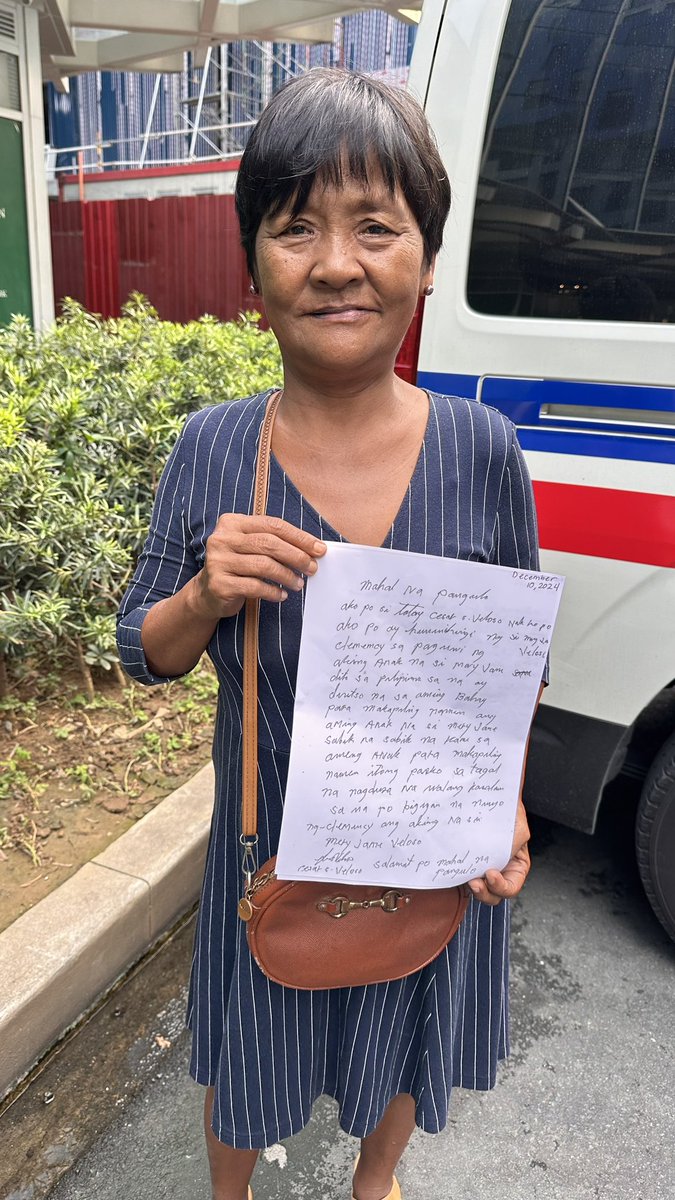 December
10, 2024
mahal na pangulo
ako po si tatay Cesar S. Veloso
ako po ay humihingi ng
clemency sa paguwi ng Veloso
aking Anak na si mary Jane
dito sa pilipinas na ay
deritso na sa aming Bahay
para makapiling namin ang
aming Anak na si mery Jane
sabik na sabik na kami sa
aming Anak para makapiling
namin itong pasko sa tagal
na nagdusa na walang kasalanan
sa na po bigyan na ninyo
ng clemency ang aking na si
mery Jane Veloso
cesar s. Veloso salamat po mahal na
pangulo